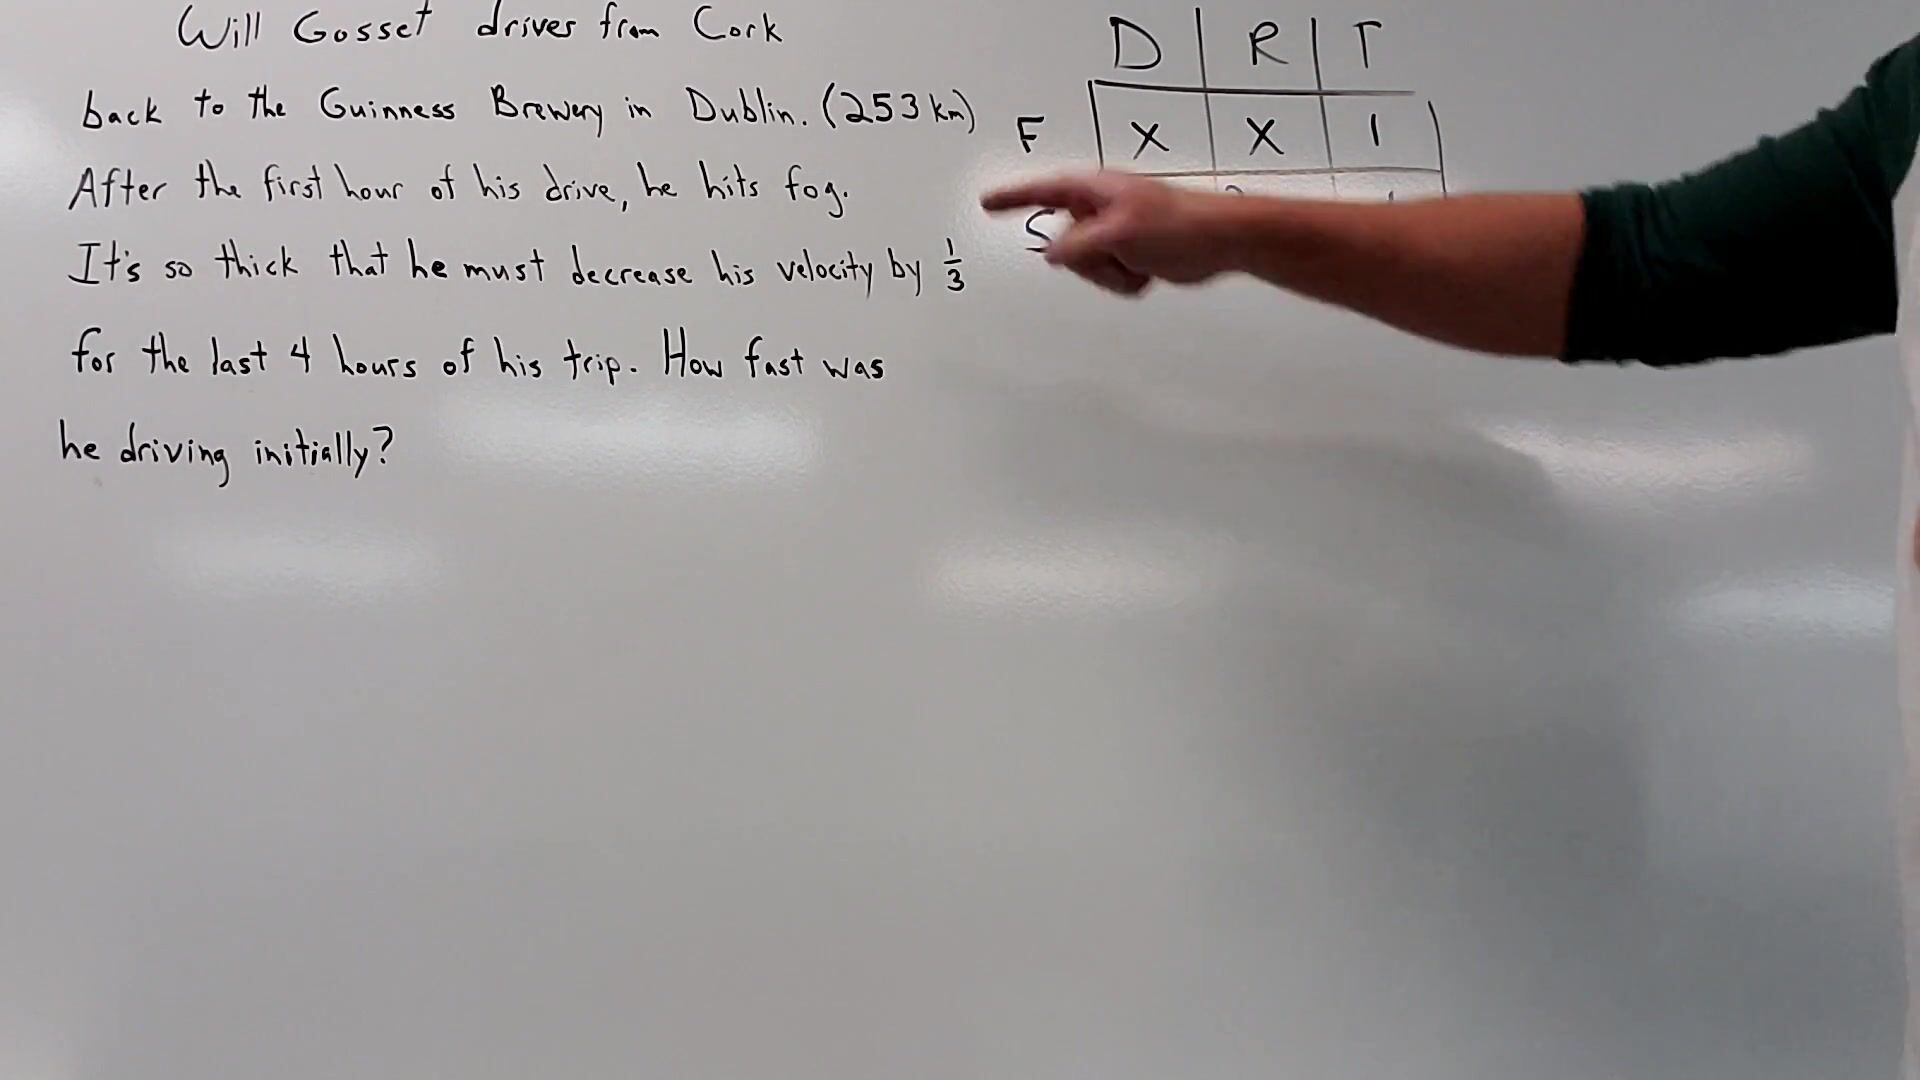 Will Gosset drives from Cork
back to the Guinness Brewery in Dublin. (253 km)
After the first hour of his drive, he hits fog.
It's so thick that he must decrease his velocity by 1/3
for the last 4 hours of his trip. How fast was
he driving initially?
D R T
F X X 1
S